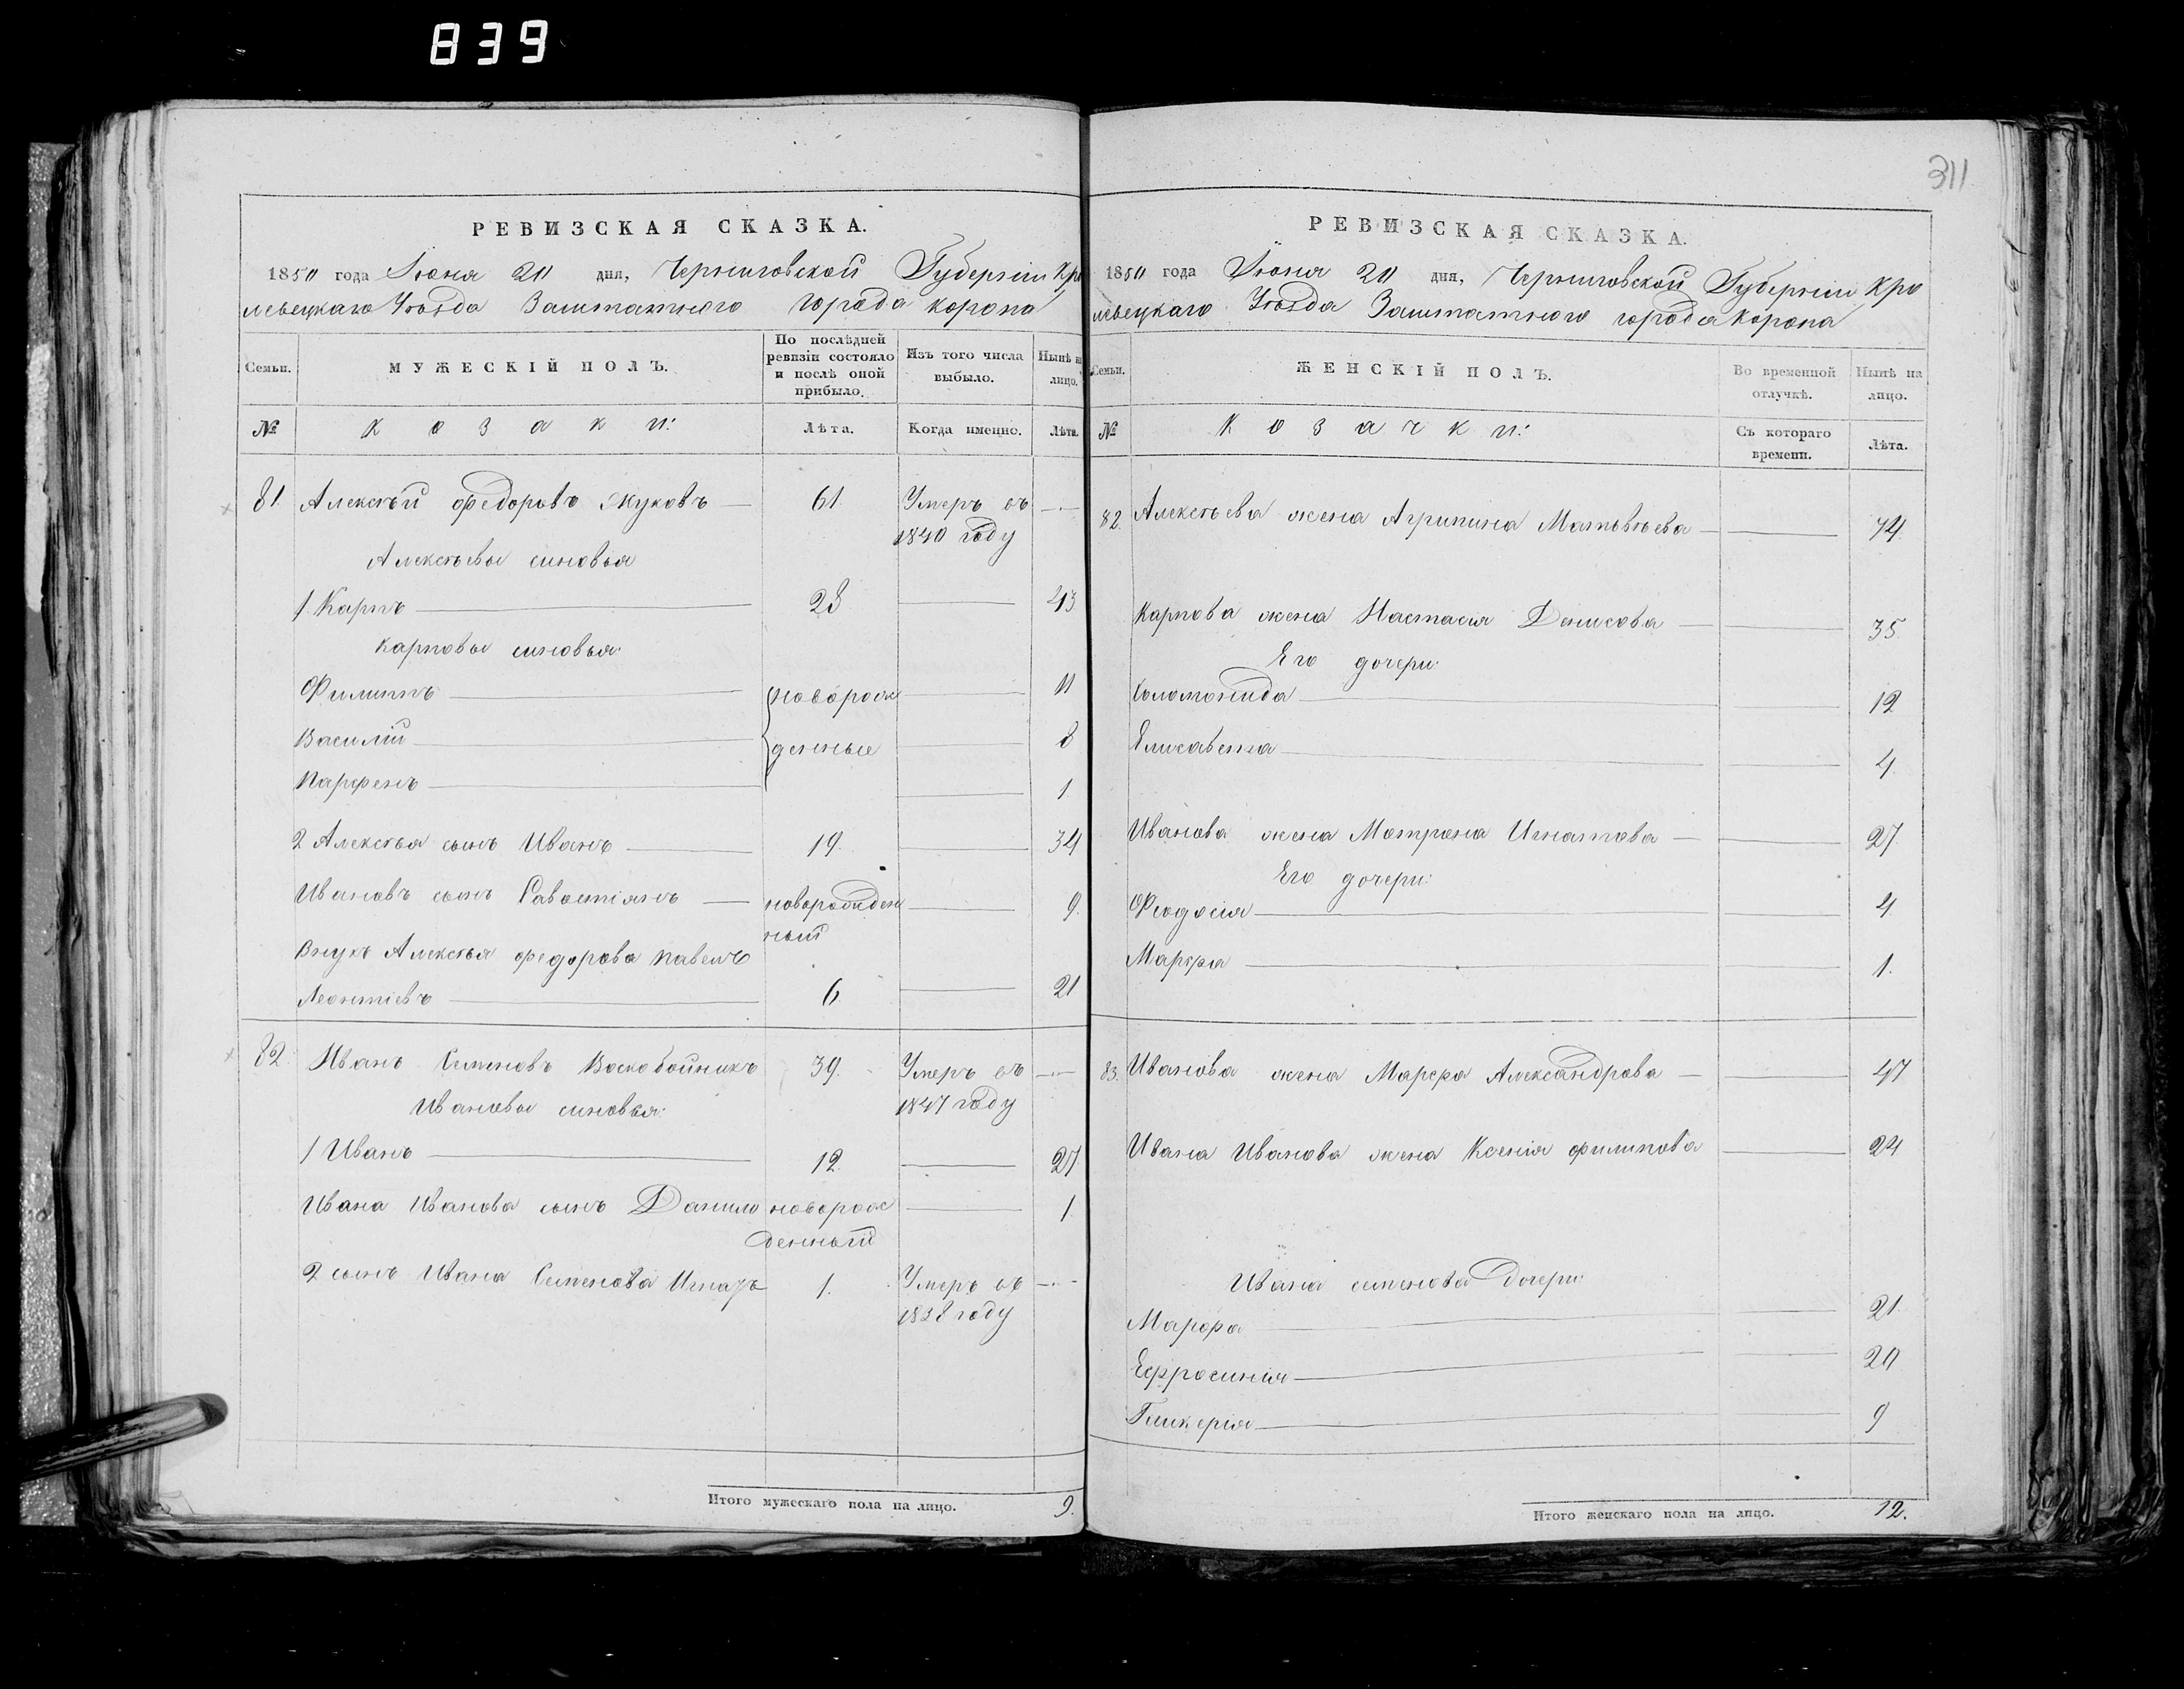 839
311
РЕВИЗСКАЯ СКАЗКА.
1850 года Іюня 20 дня, Черниговской Губерніи Кро
левецкаго Уѣзда Заштатного города Коропа
Семьи.
МУЖЕСКІЙ ПОЛЪ.
По послѣдней ревизіи состояло и послѣ оной прибыло.
Изъ того числа выбыло.
Нынѣ на лицо.
№
Козаки:
Лѣта.
Когда именно.
Лѣта.
81. Алексѣй Федоровъ Жуковъ 61. Умеръ въ
1840 году
Алексѣевы синовья
1 Карпъ 28 43
Карповы синовья:
Филиппъ новорож 11
Василій денные 8
Парфенъ 1
2 Алексѣя сынъ Иванъ 19. 34
Ивановъ сынъ Савостіянъ новорожден 9.
ный
Внукъ Алексѣя Федорова Павелъ
Леонтіевъ 6. 21
82. Иванъ Семеновъ Воскобойникъ 39. Умеръ въ
1847 году
Ивановы синовья:
1 Иванъ 12. 27.
Ивана Иванова сынъ Данило новорож 1.
денный
2 сынъ Ивана Семенова Игнатъ 1. Умеръ въ
1838 году
Итого мужескаго пола на лицо. 9.
РЕВИЗСКАЯ СКАЗКА.
1850 года Іюня 20 дня, Черниговской Губерніи Кро
левецкаго Уѣзда Заштатного города Коропа
Семьи.
ЖЕНСКІЙ ПОЛЪ.
Во временной отлучкѣ.
Нынѣ на лицо.
№
Козачки:
Съ котораго времени.
Лѣта.
82. Алексѣева жена Агрипина Матвѣева 74.
Карпова жена Настасія Денисова 35.
Его дочери:
Соломонида 12
Елисавета 4.
Иванова жена Мотрона Игнатова 27.
Его дочери:
Феодосія 4.
Марфа 1.
83. Иванова жена Марфа Александрова 47
Ивана Иванова жена Ксенія Филипова 24
Ивана Семенова дочери:
Марфа 21.
Ефросинія 20
Гликерія 9
Итого женскаго пола на лицо. 12.